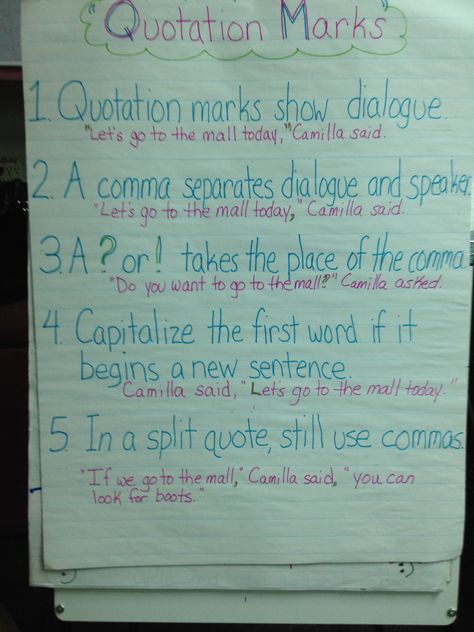 "Quotation Marks"
1. Quotation marks show dialogue.
"Let's go to the mall today," Camilla said.
2. A comma separates dialogue and speaker
"Let's go to the mall today," Camilla said.
3. A ? or ! takes the place of the comma.
"Do you want to go to the mall?" Camilla asked.
4. Capitalize the first word if it
begins a new sentence.
Camilla said, "Let's go to the mall today."
5. In a split quote, still use commas.
"If we go to the mall," Camilla said, "you can
look for boots."